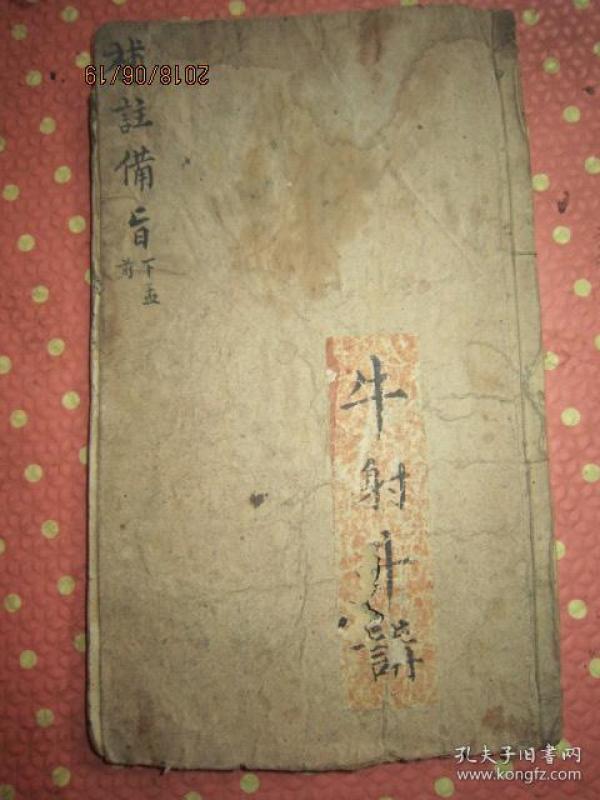 註備旨
下孟
前
牛射斗
2018/06/19
孔夫子旧書网
www.kongfz.com